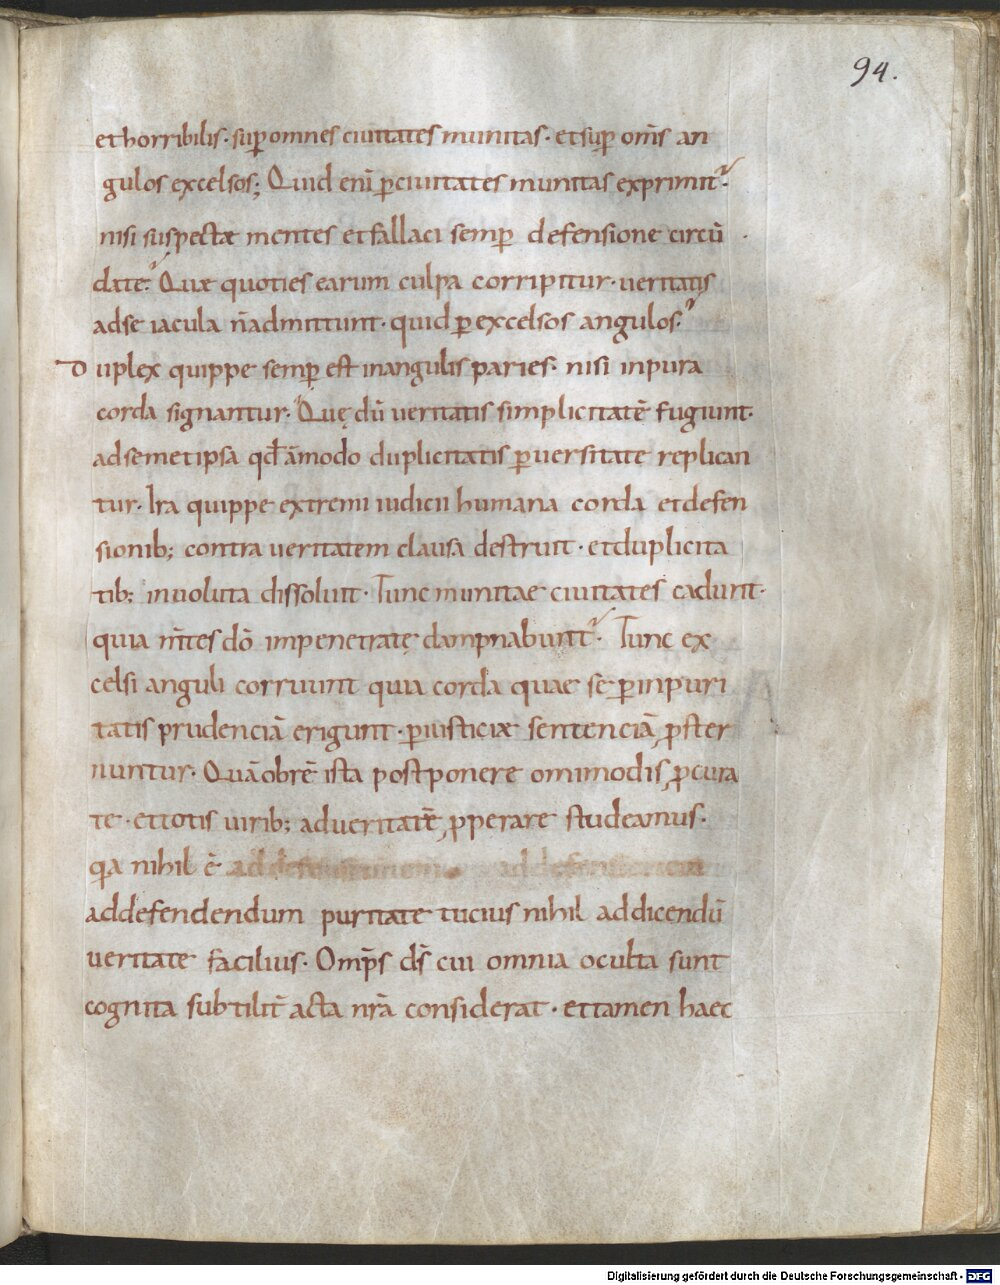 94.
et horribilis · suꝑ omnes ciuitates munitas · et suꝑ om̅s an
gulos excelsos; Quid eni̅ ꝑ ciuitates munitas exprimit?
nisi suspectæ mentes et fallaci semꝑ defensione circu̅
date? Quæ quoties earum culpa corripitur · ueritatis
ad se iacula n̅ admittunt · quid ꝑ excelsos angulos?
Duplex quippe semꝑ est in angulis paries · nisi inpura
corda signantur? Quę du̅ ueritatis simplicitate̅ fugiunt ·
ad semetipsa qđa̅modo duplicitatis ꝑuersitate replican
tur · Ira quippe extremi iudicii humana corda et defen
sionib; contra ueritatem clausa destruit · et duplicita
tib; inuoluta dissoluit · Tunc munitae ciuitates cadunt ·
quia m̅tes do̅ impenetratę dampnabunt̅ · Tunc ex
celsi anguli corruunt quia corda quae se ꝑ inpuri
tatis prudencia̅ erigunt · ꝑ iusticiæ sentencia̅ ꝓster
nuntur · Qua̅obre̅ ista postponere omimodis ꝓcura
te · et totis uirib; ad ueritate̅ ꝓperare studeamus ·
qa nihil e̅
ad defendendum puritate tucius nihil ad dicendu̅
ueritate facilius · Omp̅s d̅s cui omnia occulta sunt
cognita subtilit̅ acta nr̅a considerat · et tamen haec
Digitalisierung gefördert durch die Deutsche Forschungsgemeinschaft - DFG